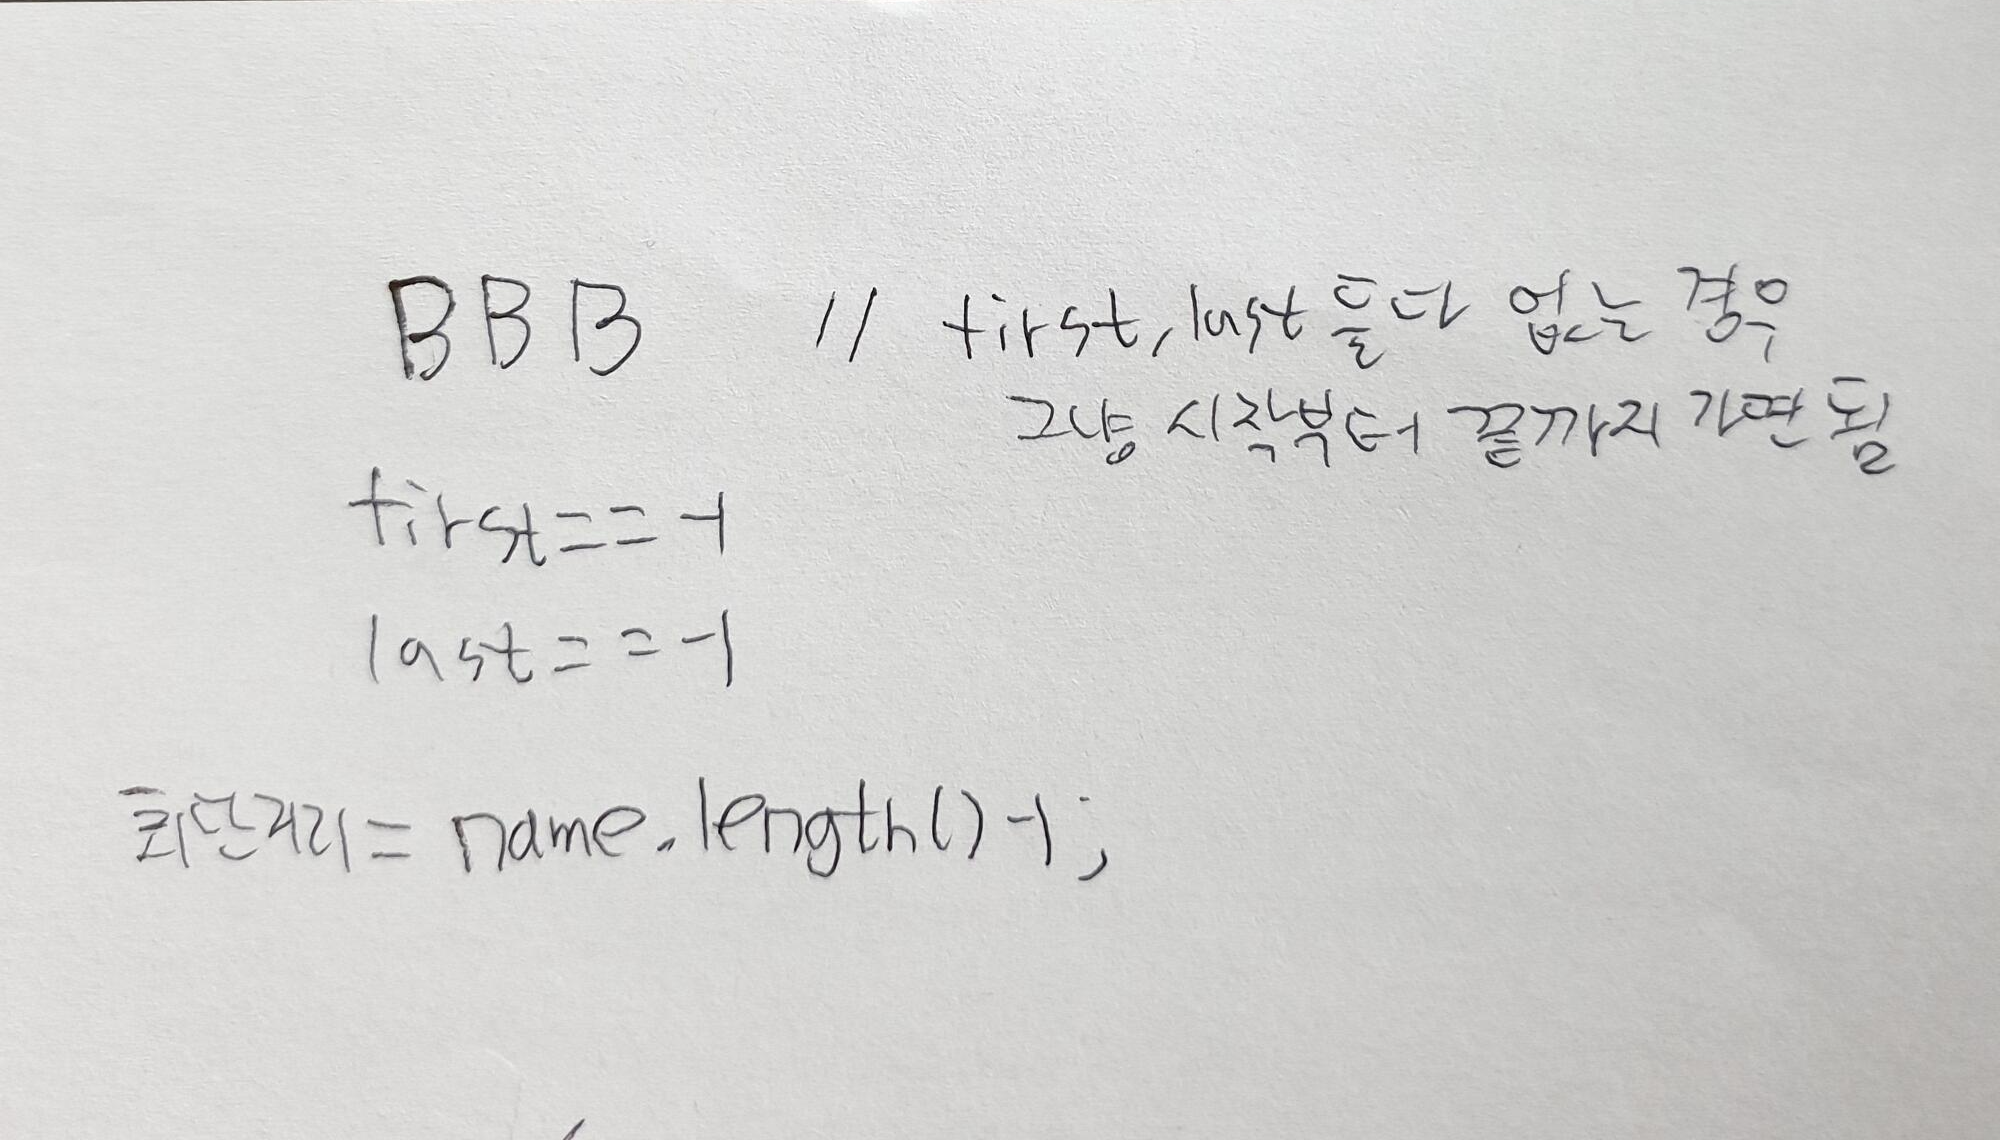 BBB // first, last 둘다 없는 경우
그냥 시작부터 끝까지 가면 됨
first==-1
last==-1
최단거리=name.length()-1;